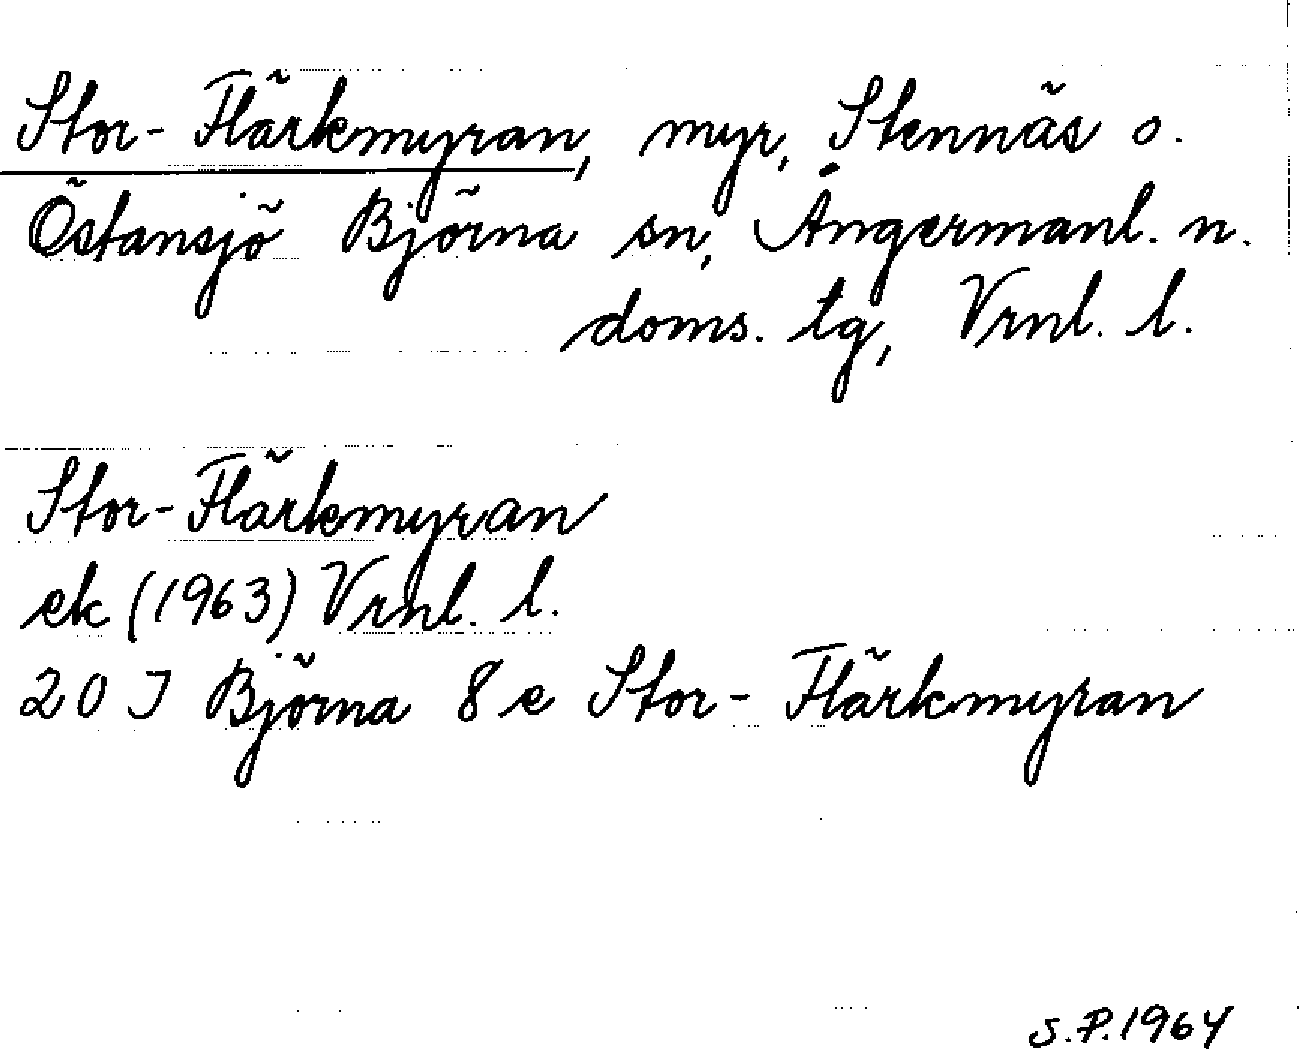 Stor-Flärkmyran, myr, Stennäs o.
Östansjö Björna sn, Ångermanl. n.
doms. tg, Vrnl. l.
Stor-Flärkmyran
ek (1963) Vrnl. l.
20 J Björna 8 e Stor-Flärkmyran
S.P. 1964